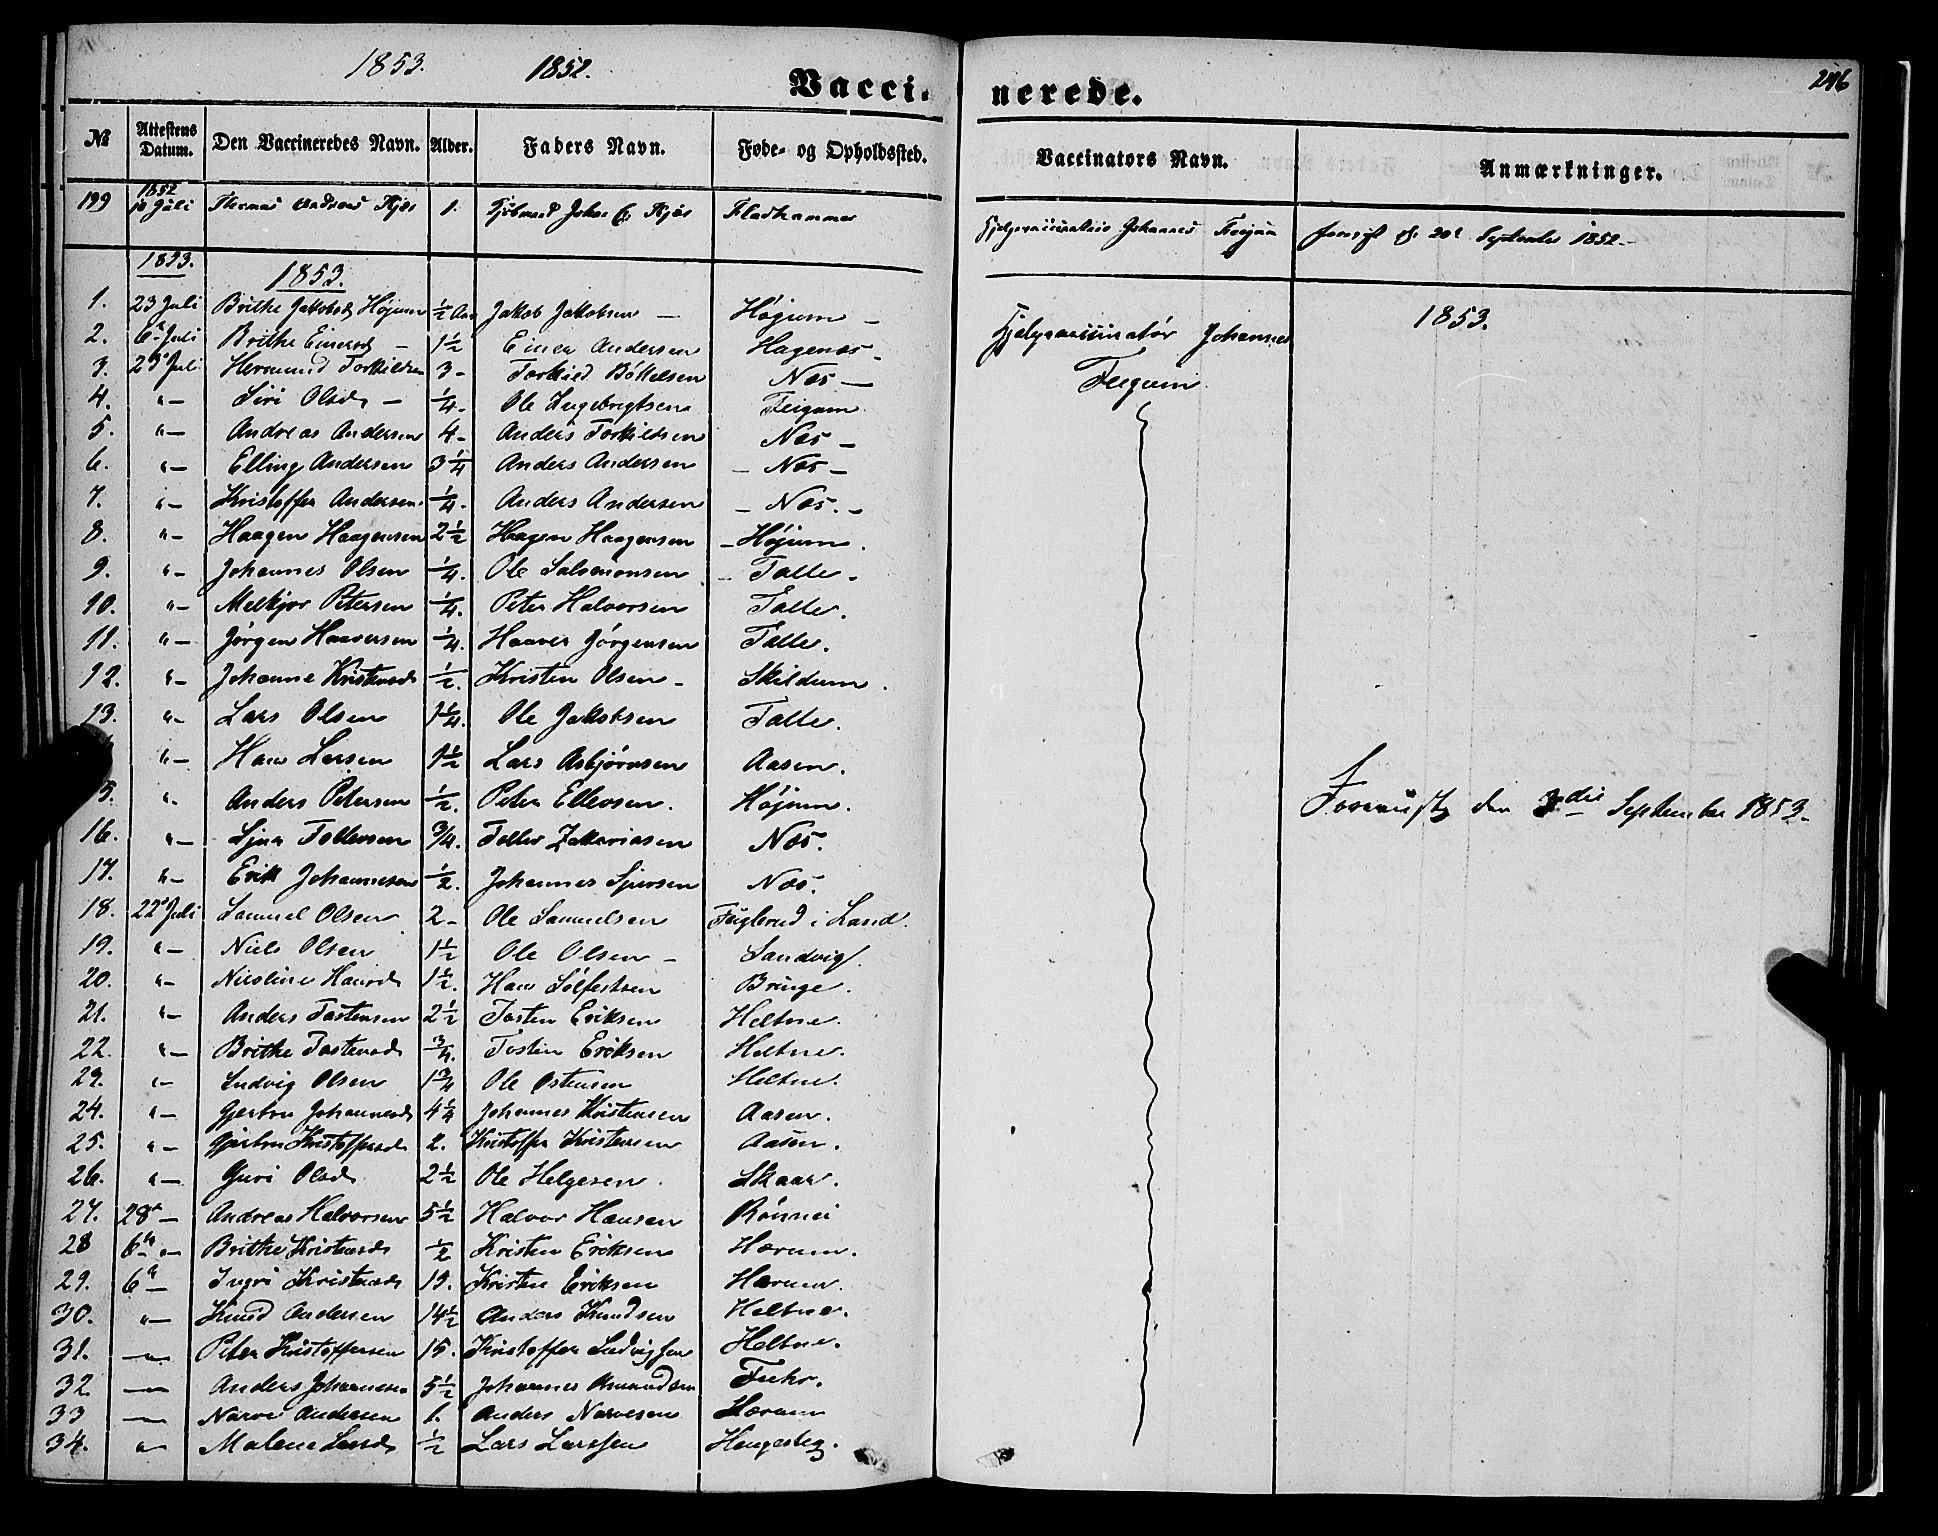 1853. 1852.
Vacci- nerede. 246
№ Attestens Datum. Den Vaccineredes Navn. Alder. Faders Navn. Føde- og Opholdssted. Vaccinators Navn. Anmærkninger.
199 1852 Juli Thomas 1. Johan Kjös Fladhammer Johannes September 1852.
1853. 1853.
1. 23 Juli Brithe Jakobsd Højum ½ Aar Jakob Jakobsen - Højum - 1853.
2. 6 Juli Brithe Einersd - 1½ Einer Andersen Hagenæs - Johannes
3. 23 Juli Hermund Torkildsen 3 - Torkild Bottelsen Næs - Feigum
4. " - Siri Olsd - ¼ - Ole Ingebrigtsen Feigum
5. " - Andreas Andersen 4 - Anders Torkildsen Næs -
6. " - Elling Andersen 3¼ Anders Andersen - Næs -
7. " - Kristoffer Andersen ¼. Anders Andersen - Næs. -
8. " - Haagen Haagensen 2½ Haagen Haagensen - Højum.
9. " - Johannes Olsen ¼. Ole Salomonsen - Talle -
10. " - Melkjor Petersen ¼. Peter Halvorsen Talle.
11. " - Jörgen Haaversen ¼. Haaver Jörgensen Talle.
12. " - Johanne Kristensd ½. Kristen Olsen - Skildum.
13. " - Lars Olsen 1¼. Ole Jakobsen Talle.
" - Hans Larsen 1½ Lars Asbjörnsen Aasen.
5. " - Anders Petersen ½. Peter Ellevsen. Højum. den 3die September 1853.
16. " - Sjur Tollevsen ¾. Tollev Zakariasen Næs.
17. " - Erik Johannesen ½. Johannes Sjursen Næs.
18. 22 Juli Samuel Olsen 2 - Ole Samuelsen Fuglerud i Land.
19. " - Niels Olsen 1½ Ole Olsen - Sandvig.
20. " - Nicoline Hansd 1½. Hans Solfestsen Bringe.
21. " - Anders Tostensen 2½ Tosten Eriksen Heltne.
22. " - Brithe Tostensd ¾. Tosten Eriksen Heltne.
23. " - Ludvig Olsen 1¾ Ole Ostensen Heltne.
24. " - Gjertru Johannesd 4¼ Johannes Kristensen Aasen.
25. " - Gjertru Kristoffersd 2. Kristoffer Kristensen Aasen.
26. " - Guri Olsd 2½ Ole Helgesen. Skaar.
27. 28 - Andreas Halvorsen 5½ Halvor Hansen Rönnei
28 6 " - Brithe Kristensd ½ Kristen Eriksen Hærum.
29. 6 - Ingri Kristensd 19. Kristen Eriksen Hærum.
30. " - Knud Andersen 14½ Anders Knudsen Heltne.
31. " Peter Kristoffersen 15. Kristoffer Ludvigsen Heltne.
32. " Anders Johannesen 5½ Johannes Amundsen Fuhr.
33 " Narve Andersen 1. Anders Narvesen Hærum
34. " Malene Larsd ½ Lars Larssen